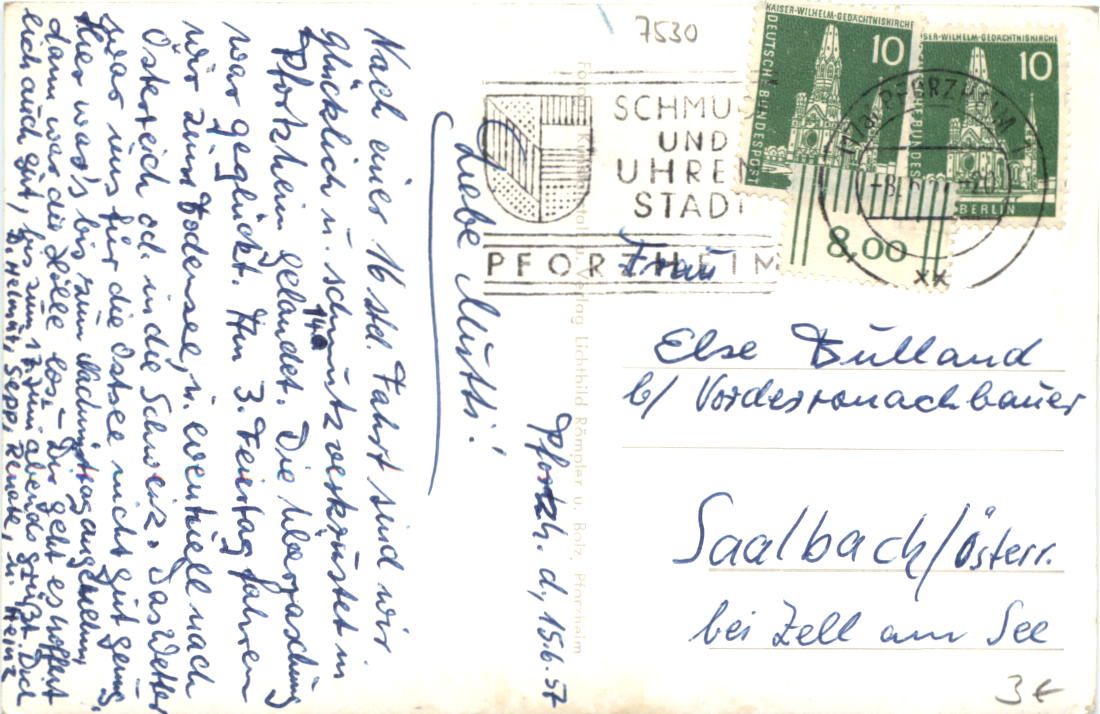 7530
KAISER-WILHELM-GEDÄCHTNISKIRCHE
10
DEUTSCHE BUNDESPOST
8,00
KAISER-WILHELM-GEDÄCHTNISKIRCHE
10
BERLIN
PFORZHEIM
SCHMUCK
UND
UHREN
STADT
PFORZHEIM
Pforzh. d, 15.6.57
Liebe Mutti!
Nach einer 16 std. Fahrt sind wir
glücklich u. schmutzverkrustet in
Pforzheim gelandet. Die Überraschung
war geglückt. Am 3. Feiertag fahren
14a
wir zum Bodensee, u. eventuell nach
Österreich od. in die Schweiz. Das Wetter
war uns für die Ostsee nicht gut genug,
Hier war's bis zum Nachmittag angenehm,
dann war die Hölle los. – Dir geht es hoffent
lich auch gut, bis zum 17. Juni abends grüßt Dich
D. Helmut, Sepp, Renate, u. Heinz
Verlag Lichtbild Römpler u. Bolz, Pforzheim
Frau
Else Bulland
b/ Vorderronachbauer
Saalbach/Österr.
bei Zell am See
3 €